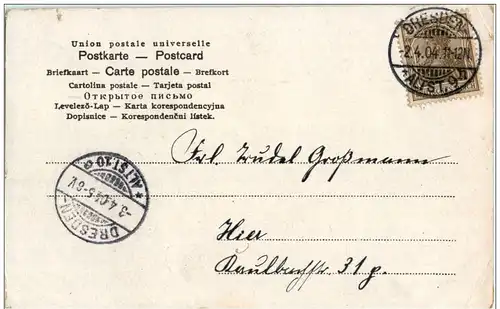 Union postale universelle
Postkarte — Postcard
Briefkaart — Carte postale — Brefkort
Cartolina postale — Tarjeta postal
Открытое письмо
Levelező-Lap — Karta korespondencyjna
Dopisnice — Korespondenční lístek.
DRESDEN
2.4.04. 11-12V.
* ALTST. 9
DRESDEN-
3.4.04. 5-6V
* ALTST. 10
Frl. Trudel Großmann
Hier
Kaulbachstr 31 p.